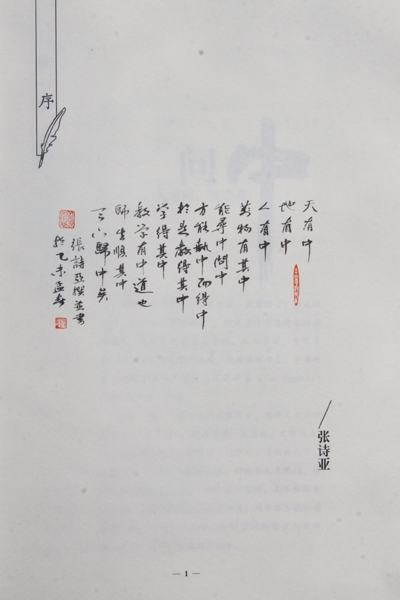 序
天有中
地有中
人有中
萬物有其中
能尋中開中
方能執中而得中
於是教得其中
学得其中
教学有中道也
師生順其中
天下歸中矣
張詩亞撰並書
於乙未孟春
张诗亚
1